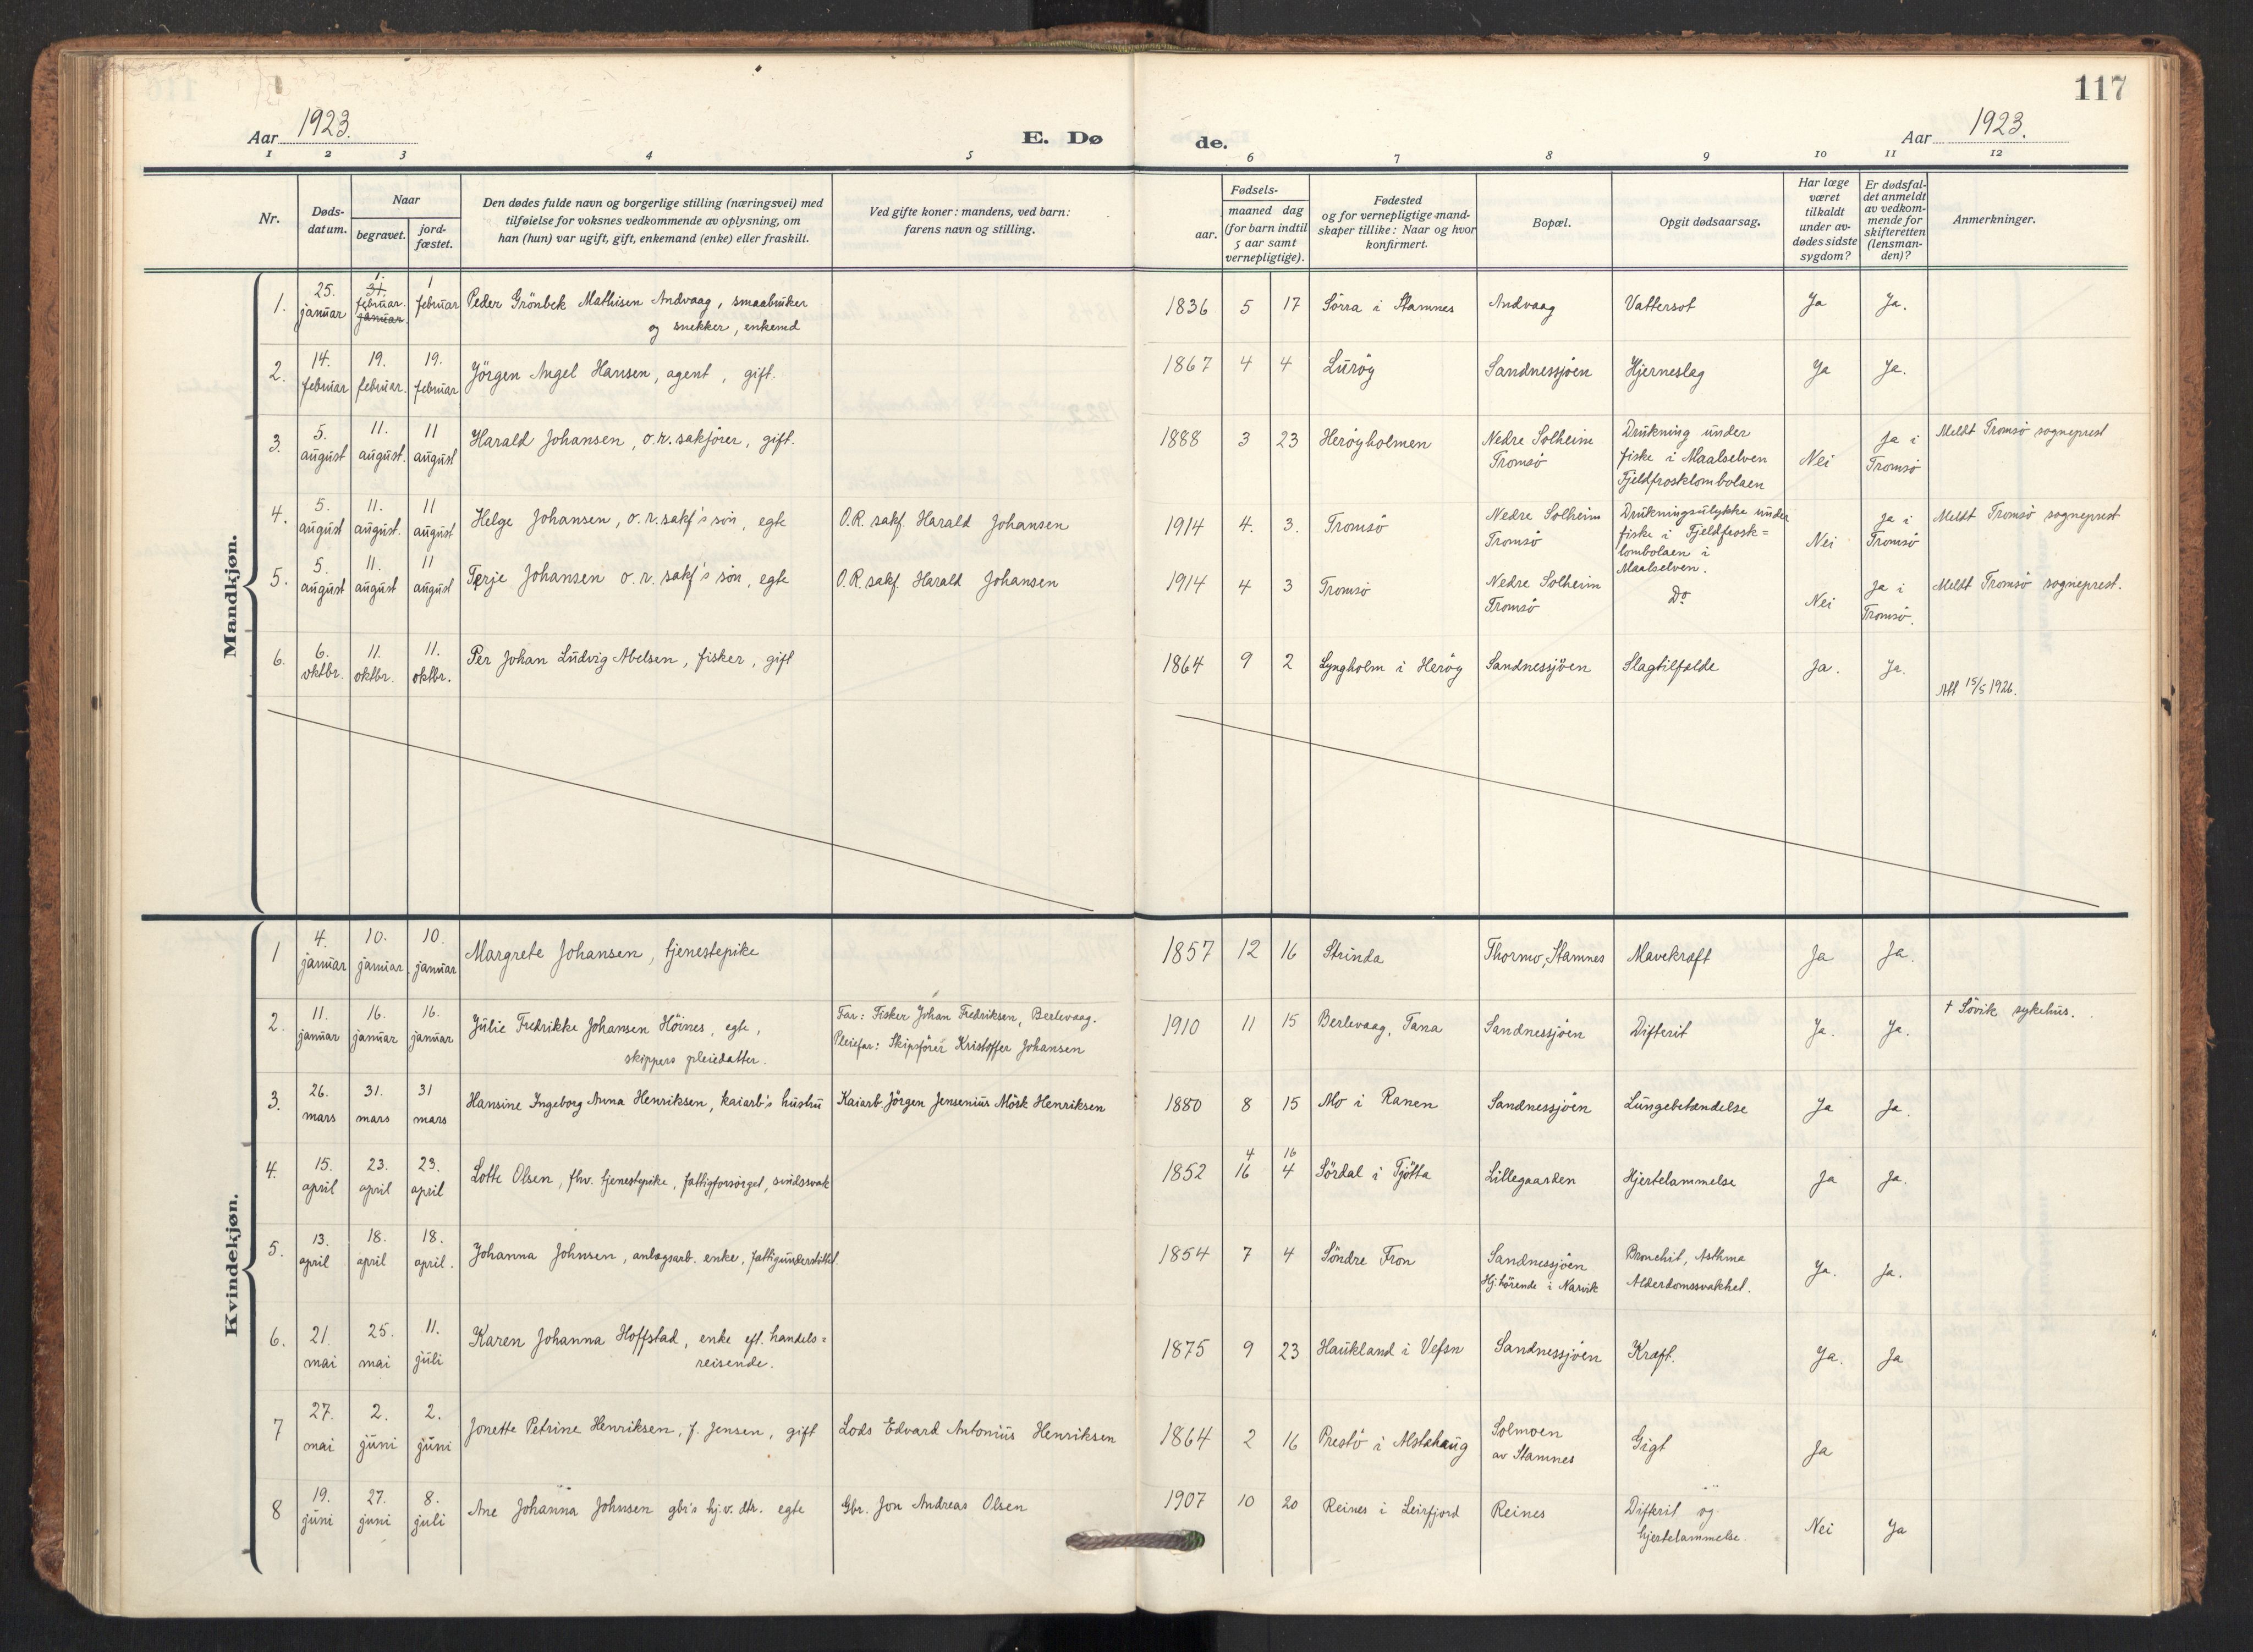 117
Aar 1923.
E. Dø
de.
Aar 1923.
1 2 3 4 5 6 7 8 9 10 11 12
Nr.
Døds-
datum.
Naar
begravet.
jord-
fæstet.
Den dødes fulde navn og borgerlige stilling (næringsvei) med
tilføielse for voksnes vedkommende av oplysning, om
han (hun) var ugift, gift, enkemand (enke) eller fraskilt.
Ved gifte koner: mandens, ved barn:
farens navn og stilling.
Fødsels-
aar.
maaned dag
(for barn indtil
5 aar samt
vernepligtige).
Fødested
og for vernepligtige mand-
skaper tillike: Naar og hvor
konfirmert.
Bopæl.
Opgit dødsaarsag.
Har læge
været
tilkaldt
under av-
dødes sidste
sygdom?
Er dødsfal-
det anmeldt
av vedkom-
mende for
skifteretten
(lensman-
den)?
Anmerkninger.
Mandkjøn.
1.
25.
januar
1.
31.
februar.
januar.
1
februar
Peder Grönbek Mathisen Andvaag, smaabruker
og snekker, enkemd
1836 5 17 Sörra i Stamnes
Andvaag
Vattersot
Ja
Ja.
2.
14.
februar
19.
februar.
19.
februar
Jörgen Angel Hansen, agent, gift.
1867 4 4 Luröy
Sandnessjöen
Hjerneslag
Ja
Ja.
3.
5.
august
11.
august.
11
august
Harald Johansen, o.r.sakförer, gift.
1888 3 23 Heröyholmen
Nedre Solheim
Tromsö
Drukning under
fiske i Maalselven
Fjeldfrosklombolaen
Nei
Ja i
Tromsö
Meldt Tromsö sogneprest
4.
5.
august
11.
august.
11
august
Helge Johansen, o.r.sakf's sön, egte
O.R. sakf. Harald Johansen
1914 4. 3. Tromsö
Nedre Solheim
Tromsö
Drukningsulykke under
fiske i Fjeldfrosk=
lombolaen i
Maalselven.
Nei
Ja i
Tromsö
Meldt Tromsö sogneprest
5.
5.
august
11.
august
11
august
Terje Johansen o.r.sakf's sön, egte
O.R. sakf. Harald Johansen
1914 4 3 Tromsö
Nedre Solheim
Tromsö
Do
Nei
Ja i
Tromsö.
Meldt Tromsö sogneprest.
6.
6.
oktbr.
11.
oktbr.
11.
oktbr.
Per Johan Ludvig Abelsen, fisker, gift
1864 9 2 Lyngholm i Heröy
Sandnessjöen
Slagtilfælde
Ja.
Ja.
15/5 1926.
Kvindekjøn.
1
4.
januar
10.
januar.
10.
januar
Margrete Johansen, tjenestepike
1857 12 16 Strinda
Thormo, Stamnes
Mavekræft
Ja
Ja.
2.
11.
januar
16.
januar
16.
januar
Julie Fredrikke Johansen Höines, egte,
skippers pleiedatter.
Far: Fisker Johan Fredriksen, Berlevaag.
Pleiefar: Skipsförer Kristoffer Johansen
1910 11 15 Berlevaag, Tana
Sandnessjöen
Difterit
Ja.
Ja.
† Sövik sykehus.
3.
26.
mars
31.
mars
31
mars
Hansine Ingeborg Anna Henriksen, kaiarb's hustru
Kaiarb. Jörgen Jensenius Mörk Henriksen
1880 8 15 Mo i Ranen
Sandnessjöen
Lungebetændelse
Ja
Ja.
4.
15.
april
23.
april
23.
april
Lotte Olsen, fhv. tjenestepike, fattigforsörget, sindssvak
4 16
1852 16 4 Sördal i Tjötta
Lillegaarden
Hjertelammelse
Ja
Ja.
5.
13.
april
18.
april
18.
april.
Johanna Johnsen, anlægsarb. enke, fattigunderstöttet.
1854 7 4 Söndre Fron
Sandnessjöen
Hj.hörende i Narvik
Bronchit, Asthma
Alderdomssvakhet.
Ja.
Ja.
6.
21.
mai
25.
mai
11.
juli
Karen Johanna Hoffstad, enke eft. handels=
reisende.
1875 9 23 Haukland i Vefsn
Sandnessjöen
Kræft.
Ja.
Ja
7
27.
mai
2.
juni
2.
juni
Jonette Petrine Henriksen, f. Jensen, gift
Lods Edvard Antonius Henriksen
1864 2 16 Prestö i Alstahaug
Solmoen
av Stamnes
Gigt
Ja
8
19.
juni
27.
juni
8.
juli
Ane Johanna Johnsen gbr's hj.v. dtr. egte
Gbr. Jon Andreas Olsen
1907 10 20 Reines i Leirfjord
Reines
Difterit og
hjertelammelse.
Nei
Ja